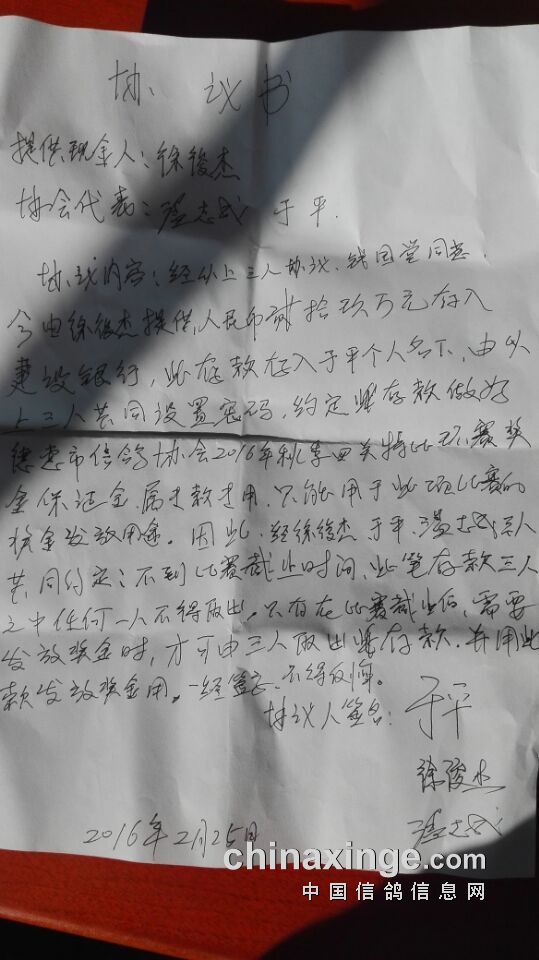 协议书
提供现金人：徐俊杰
协会代表：温志成 于平.
协议内容：经以上三人协议、钱国堂同意.
今由徐俊杰提供人民币 拾玖万元存入
建设银行，此存款存入于平个人名下、由以
上三人共同设置密码，约定此存款做为
市信鸽协会2016年秋季四关特比环赛奖
金保证金.属专款专用.只能用于此项比赛的
奖金发放用途。因此.经徐俊杰 于平.温志成三人
共同约定：不到比赛截止时间.此笔存款三人
之中任何一人不得取出.只有在比赛截止后，需要
发放奖金时，才可由三人取出此存款.并用此
款发放奖金用。一经签字.不得反悔。
协议人签名：于平
徐俊杰
温志成
2016年2月25日
chinaxinge.com
中国信鸽信息网